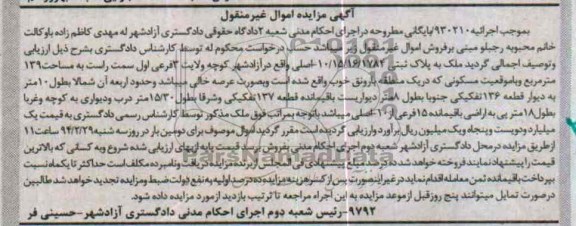 آگهی مزایده اموال غیرمنقول
بموجب اجرائیه ۹۳۰۲۱۰ بایگانی مطروحه در اجرای احکام مدنی شعبه ۲ دادگاه حقوقی دادگستری آزادشهر له مهدی کاظم زاده باوکالت
خانم محبوبه رجبلو مبنی برفروش اموال غیر منقول می باشد حسب درخواست محکوم له توسط کارشناس دادگستری بشرح ذیل ارزیابی
وتوصیف اجمالی گردید ملک به پلاک ثبتی ۱۰/۱۵/۱۶/۱۷۸۲-اصلی واقع درآزادشهر کوچه ولایت ۳فرعی اول سمت راست به مساحت ۱۳۹
مترمربع وباموقعیت مسکونی که دریک منطقه بارونق خوب واقع شده است وبصورت عرصه خالی میباشد وحدود اربعه آن شمالا بطول ۱۰متر
به دیوار قطعه ۱۳۶تفکیکی جنوبا بطول ۸متر دیواریست باقیمانده قطعه ۱۳۷تفکیکی وشرقا بطول ۱۵/۳۰متر درب ودیواری به کوچه وغربا
بطول ۱۸متر پی به اراضی باقیمانده ۱۵فرعی از ۱۰-اصلی میباشد باتوجه بمراتب فوق ملک مذکور توسط کارشناس رسمی دادگستری به قیمت یک
میلیارد ودویست وپنجاه ویک میلیون ریال برآورد وارزیابی گردیده است مقرر گردید اموال موصوف برای دومین بار در روز سه شنبه ۹۴/۲/۲۹ ساعت ۱۱
ازطریق مزایده درمحل دادگستری آزادشهر شعبه دوم اجرای احکام مدنی بفروش برسد قیمت پایه ازبهای ارزیابی شده شروع وبه کسانی که بالاترین
قیمت را پیشنهاد نمایند فروخته خواهد شد ده درصد بهای
بپرداخت باقیمانده ثمن معامله اقدام نماید در غیر اینصورت پس از کسر هزینه مزایده ده درصد اولیه به نفع دولت ضبط ومزایده تجدید خواهد شد طالبین
درصورت تمایل میتوانند پنج روز قبل ازموعد مزایده به این اجراء مراجعه تا ترتیب بازدید از مورد مزایده داده شود.
۹۷۹۲-رئیس شعبه دوم اجرای احکام مدنی دادگستری آزادشهر-حسینی فر